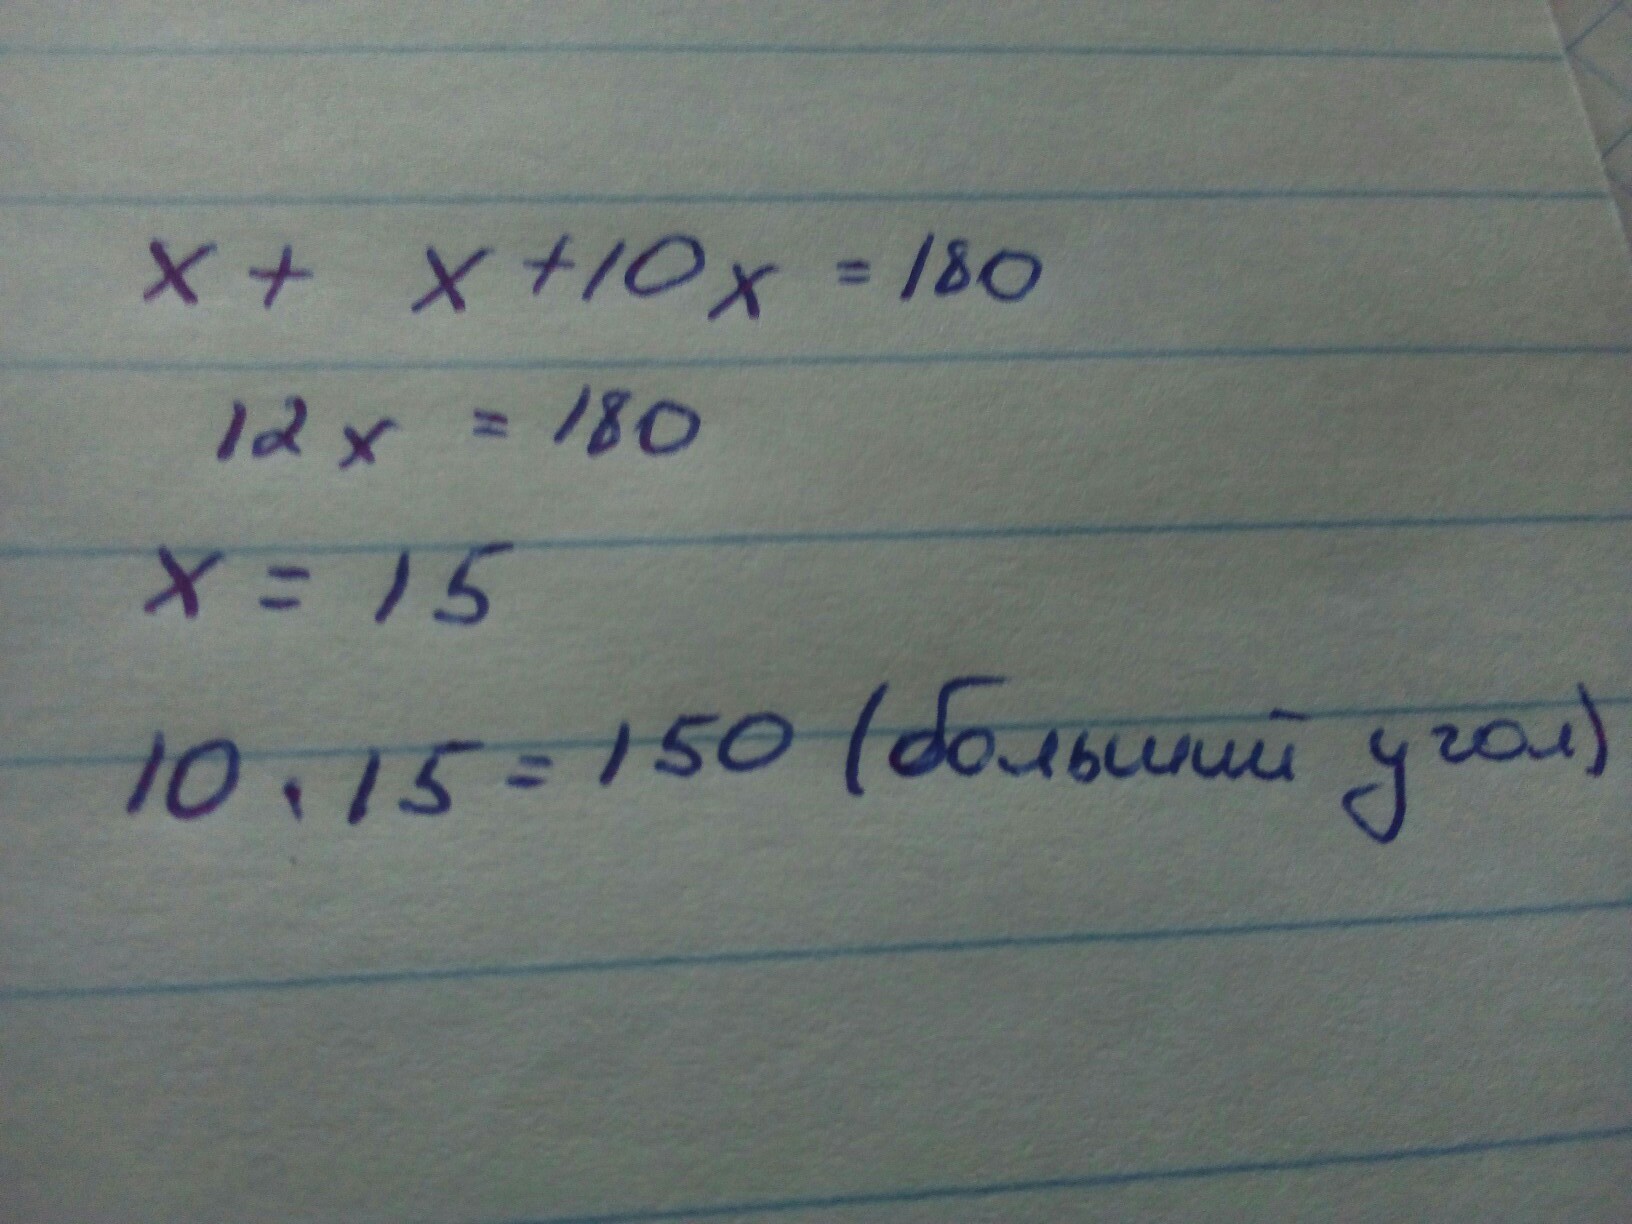 x + x + 10x = 180
12x = 180
x = 15
10 · 15 = 150 (больший угол)